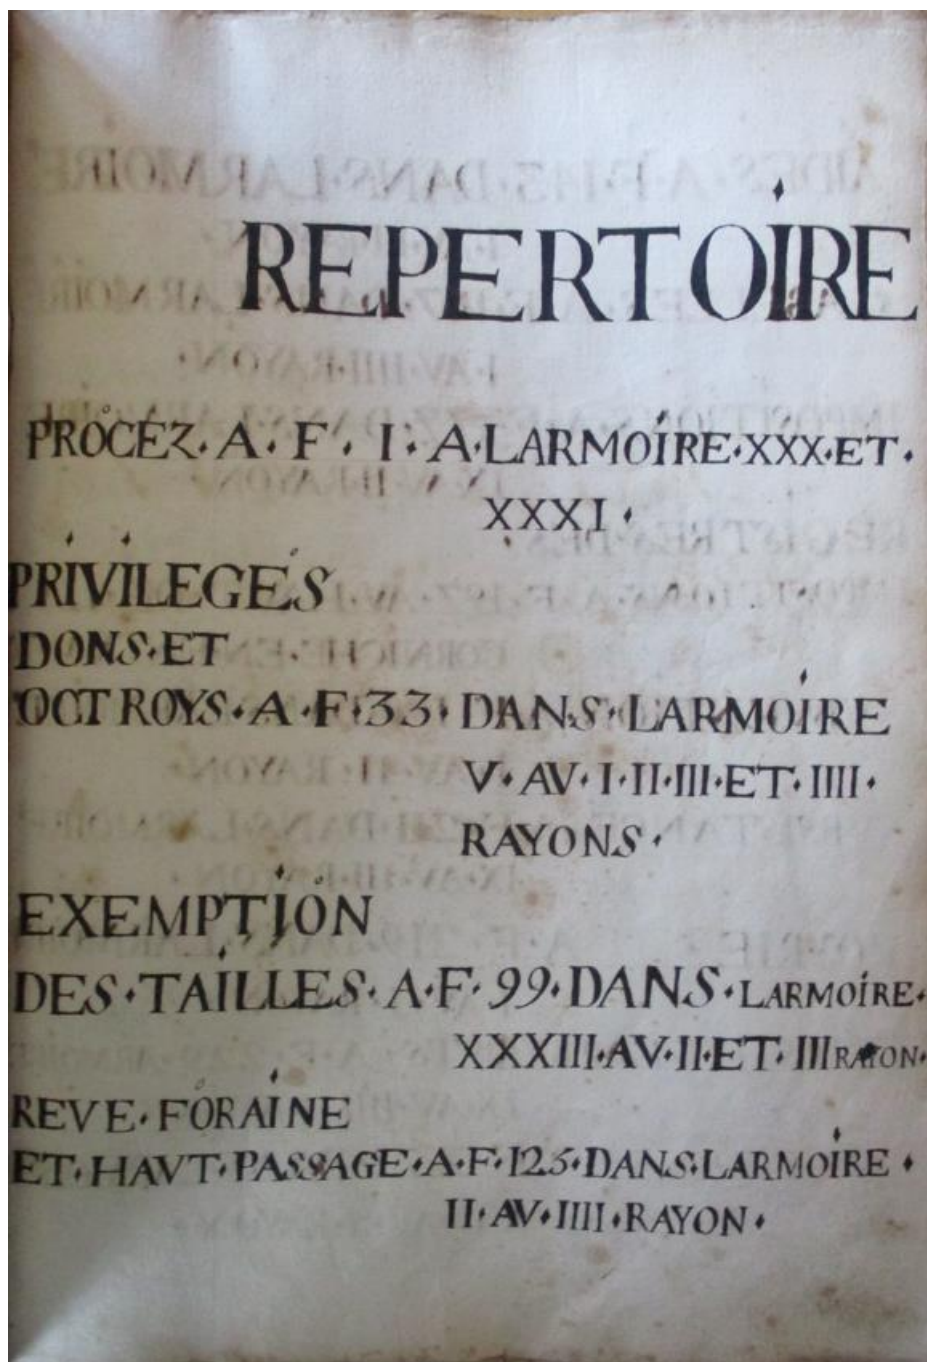 REPERTOIRE
PROCEZ·A·F·I·A·LARMOIRE·XXX·ET·
XXXI·
PRIVILEGES
DONS·ET
OCTROYS·A·F·33·DANS·LARMOIRE
V·AV·I·II·III·ET·IIII·
RAYONS·
EXEMPTION
DES·TAILLES·A·F·99·DANS·LARMOIRE·
XXXIII·AV·II·ET·III RAYON·
REVE·FORAINE
ET·HAVT·PASSAGE·A·F·125·DANS·LARMOIRE·
II·AV·IIII·RAYON·